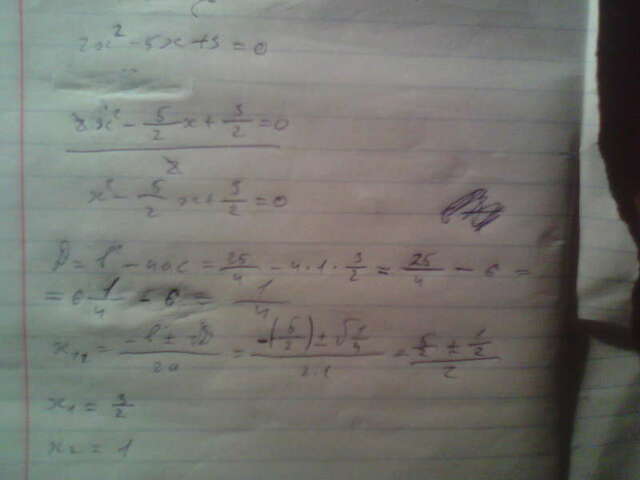 2x² - 5x + 3 = 0
2x² - 5/2 x + 3/2 = 0
2
x² - 5/2 x + 3/2 = 0
D = b² - 4ac = 25/4 - 4·1·3/2 = 25/4 - 6 =
= 6 1/4 - 6 = 1/4
x₁,₂ = (-b ± √D)/2a = (-(5/2) ± √1/4)/2·1 = (5/2 ± 1/2)/2
x₁ = 3/2
x₂ = 1